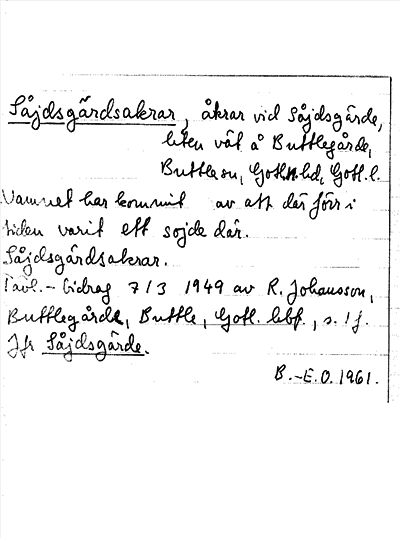 Såjdsgårdsakrar, åkrar vid Såjdsgärde,
liten vät å Buttlegårde,
Buttle sn, Gotl. n. hd, Gotl. l.
Namnet har kommit av att där förr i
tiden varit ett sojde där.
Såjdsgårdsakrar.
Tävl.-bidrag 7/3 1949 av R. Johansson,
Buttlegårde, Buttle, Gotl. hbf., s. 1 f.
Jfr Såjdsgärde.
B.-E.O. 1961.